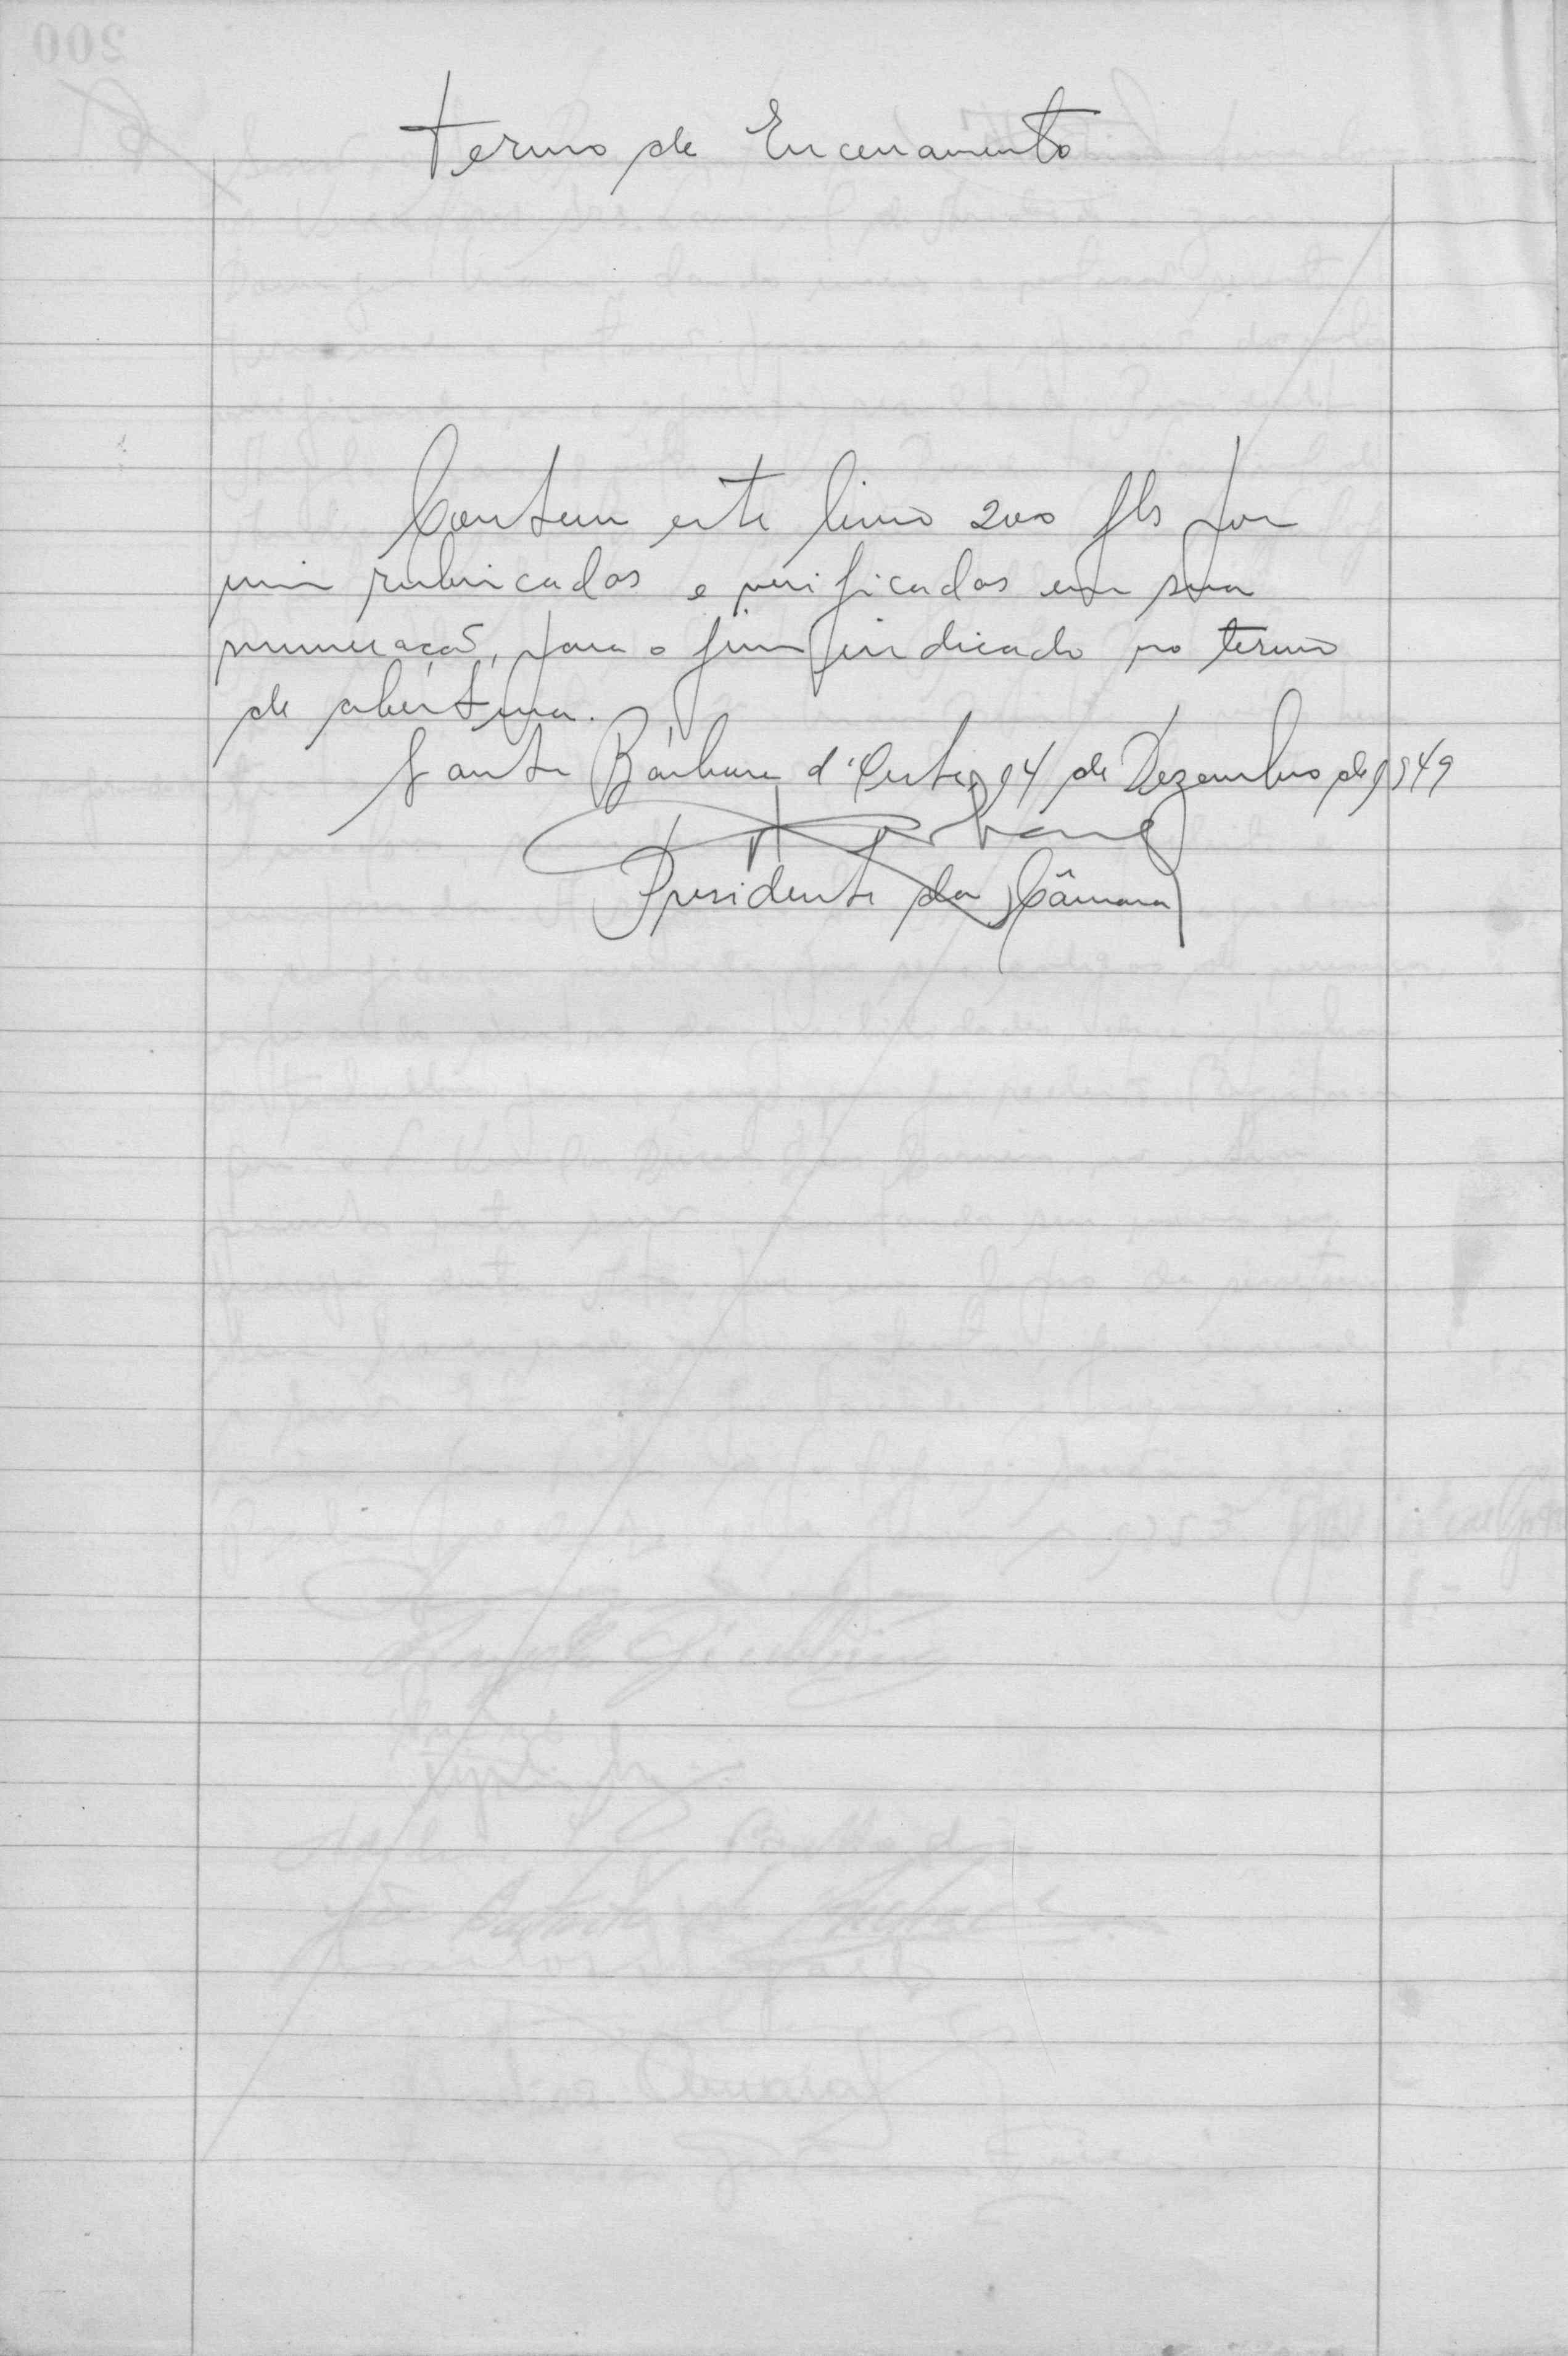 Termo de Encerramento
Contem este livro 200 fls por
mim rubricadas e verificadas em sua
numeração, para o fim indicado no termo
de abertura.
Santa Bárbara d'Oeste, 14 de Dezembro de 1949
Presidente da Câmara